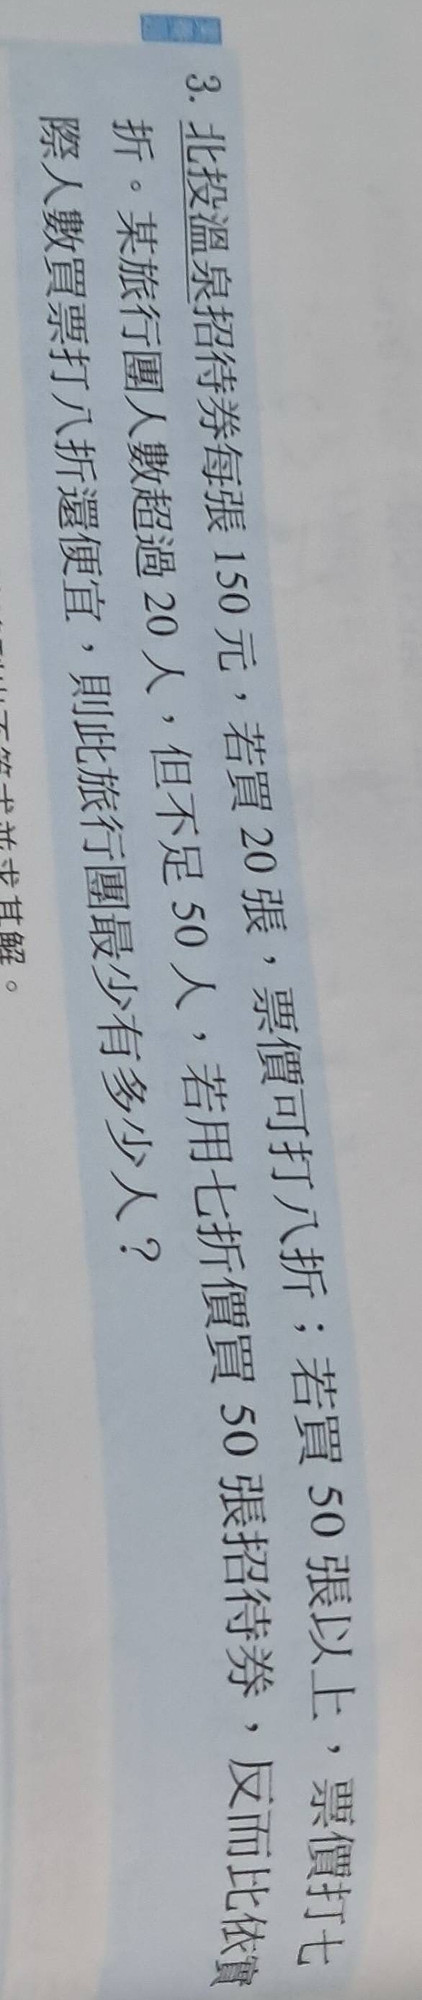 3. 北投溫泉招待券每張 150 元,若買 20 張,票價可打八折;若買 50 張以上,票價打七
折。某旅行團人數超過 20 人,但不足 50 人,若用七折價買 50 張招待券,反而比依實
際人數買票打八折還便宜,則此旅行團最少有多少人?
求其解。